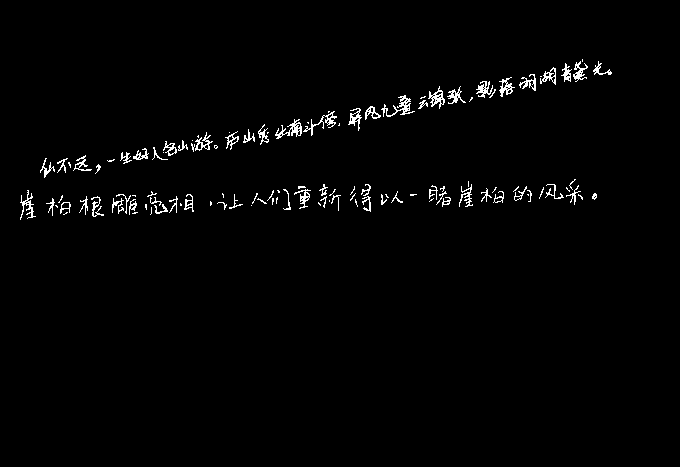 仙不远，一生好入名山游。庐山秀出南斗傍，屏风九叠云锦张，影落明湖青黛光。
崖柏根雕亮相，让人们重新得以一睹崖柏的风采。